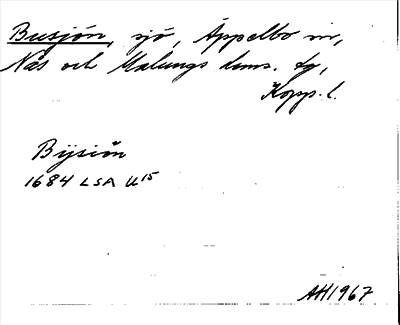 Busjön, sjö, Äppelbo sn,
Nås och Malungs dms. tg,
Kopp. l.
Bÿsiön
1684 LSA U15
AH 1967